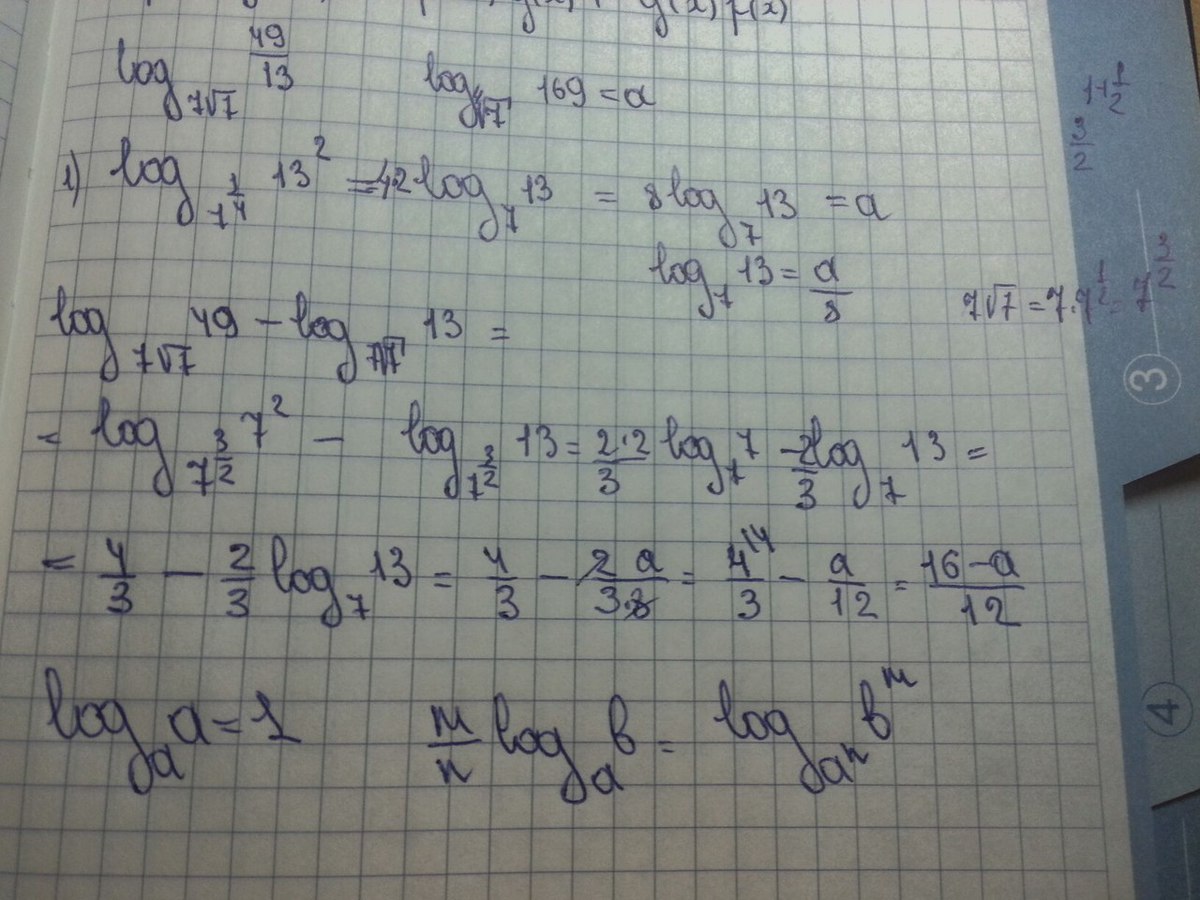 g(x) f(x)
log_{7√7} 49/13   log_{⁴√7} 169 = a
1) log_{7^{1/4}} 13² = 4·2 log_7 13 = 8 log_7 13 = a
log_7 13 = a/8
log_{7√7} 49 − log_{7√7} 13 =
= log_{7^{3/2}} 7² − log_{7^{3/2}} 13 = 2·2/3 log_7 7 − 2/3 log_7 13 =
= 4/3 − 2/3 log_7 13 = 4/3 − 2a/3·8 = 4^{\4}/3 − a/12 = 16−a/12
log_a a = 1   m/n log_a b = log_{a^n} b^m
1+1/2
3/2
7√7 = 7·7^{1/2} = 7^{3/2}
3
4